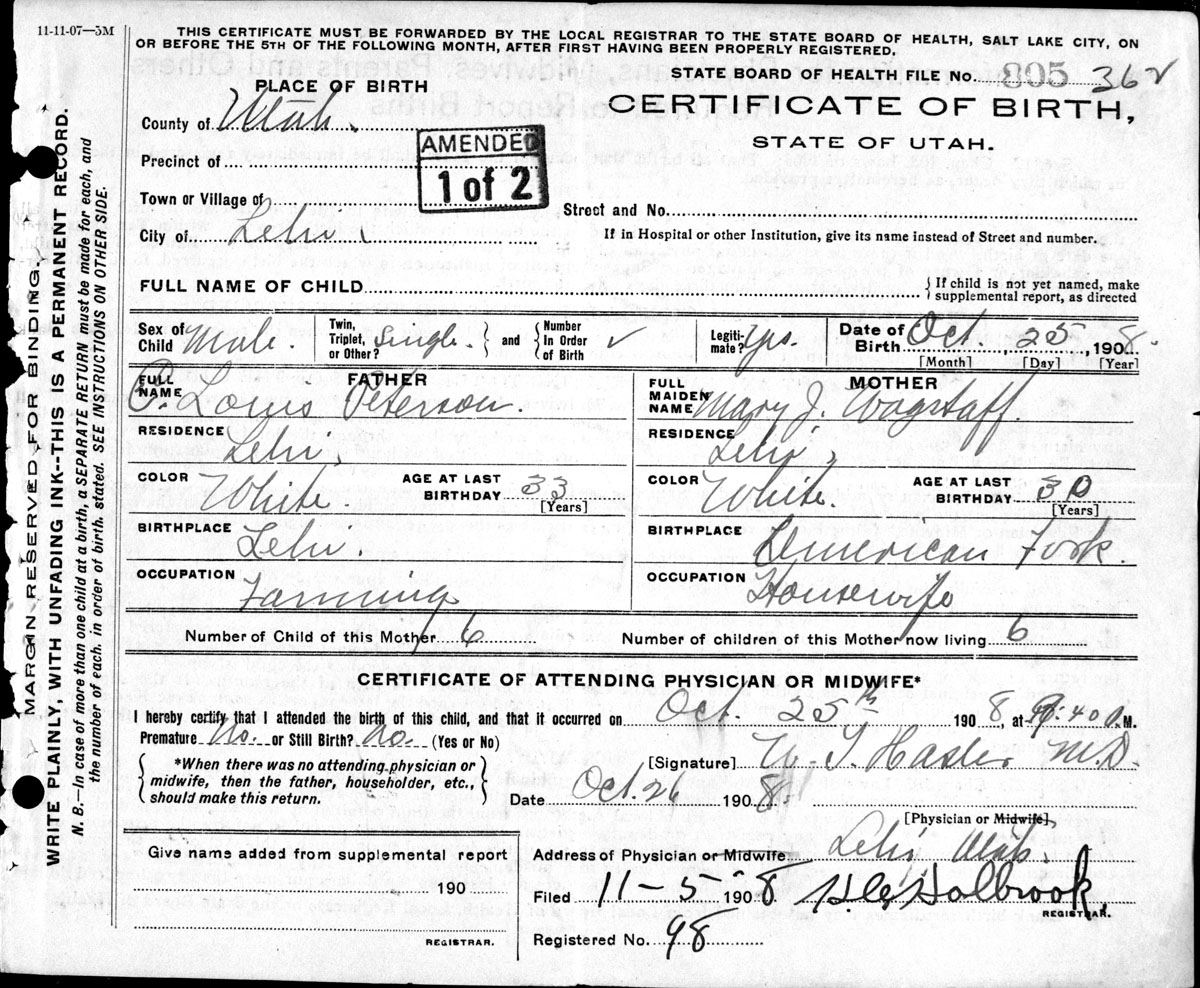 11-11-07—5M
THIS CERTIFICATE MUST BE FORWARDED BY THE LOCAL REGISTRAR TO THE STATE BOARD OF HEALTH, SALT LAKE CITY, ON
OR BEFORE THE 5TH OF THE FOLLOWING MONTH, AFTER FIRST HAVING BEEN PROPERLY REGISTERED.
STATE BOARD OF HEALTH FILE No. 805 362
PLACE OF BIRTH
CERTIFICATE OF BIRTH,
STATE OF UTAH.
County of Utah.
AMENDED
1 of 2
Precinct of
Town or Village of
Street and No.
City of Lehi.
If in Hospital or other Institution, give its name instead of Street and number.
FULL NAME OF CHILD
{If child is not yet named, make
supplemental report, as directed
Sex of Child Male. Twin, Triplet, or Other? Single. } and { Number In Order of Birth ✓ Legiti-mate? Yes. Date of Birth Oct. 25, 1908.
[Month] [Day] [Year]
FATHER MOTHER
FULL NAME P. Louis Peterson. FULL MAIDEN NAME Mary J. Wagstaff.
RESIDENCE Lehi. RESIDENCE Lehi.
COLOR White. AGE AT LAST BIRTHDAY 33 [Years] COLOR White. AGE AT LAST BIRTHDAY 30 [Years]
BIRTHPLACE Lehi. BIRTHPLACE American Fork.
OCCUPATION Farming OCCUPATION Housewife
Number of Child of this Mother 6 Number of children of this Mother now living 6
CERTIFICATE OF ATTENDING PHYSICIAN OR MIDWIFE*
I hereby certify that I attended the birth of this child, and that it occurred on Oct. 25th 1908, at :40 M.
Premature No. or Still Birth? No. (Yes or No)
*When there was no attending physician or
midwife, then the father, householder, etc.,
should make this return.
[Signature] Hasler M.D.
Date Oct. 26 1908
[Physician or Midwife]
Give name added from supplemental report
190
REGISTRAR.
Address of Physician or Midwife Lehi Utah.
Filed 11-5- 1908 Holbrook,
REGISTRAR.
Registered No. 98
MARGIN RESERVED FOR BINDING.
WRITE PLAINLY, WITH UNFADING INK--THIS IS A PERMANENT RECORD.
N. B.—In case of more than one child at a birth, a SEPARATE RETURN must be made for each, and
the number of each, in order of birth, stated. SEE INSTRUCTIONS ON OTHER SIDE.